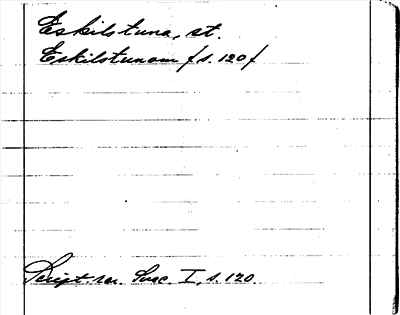 Eskilstuna, st.
Eskilstunam /s. 120/
Script. rer. Suec. I, s. 120.